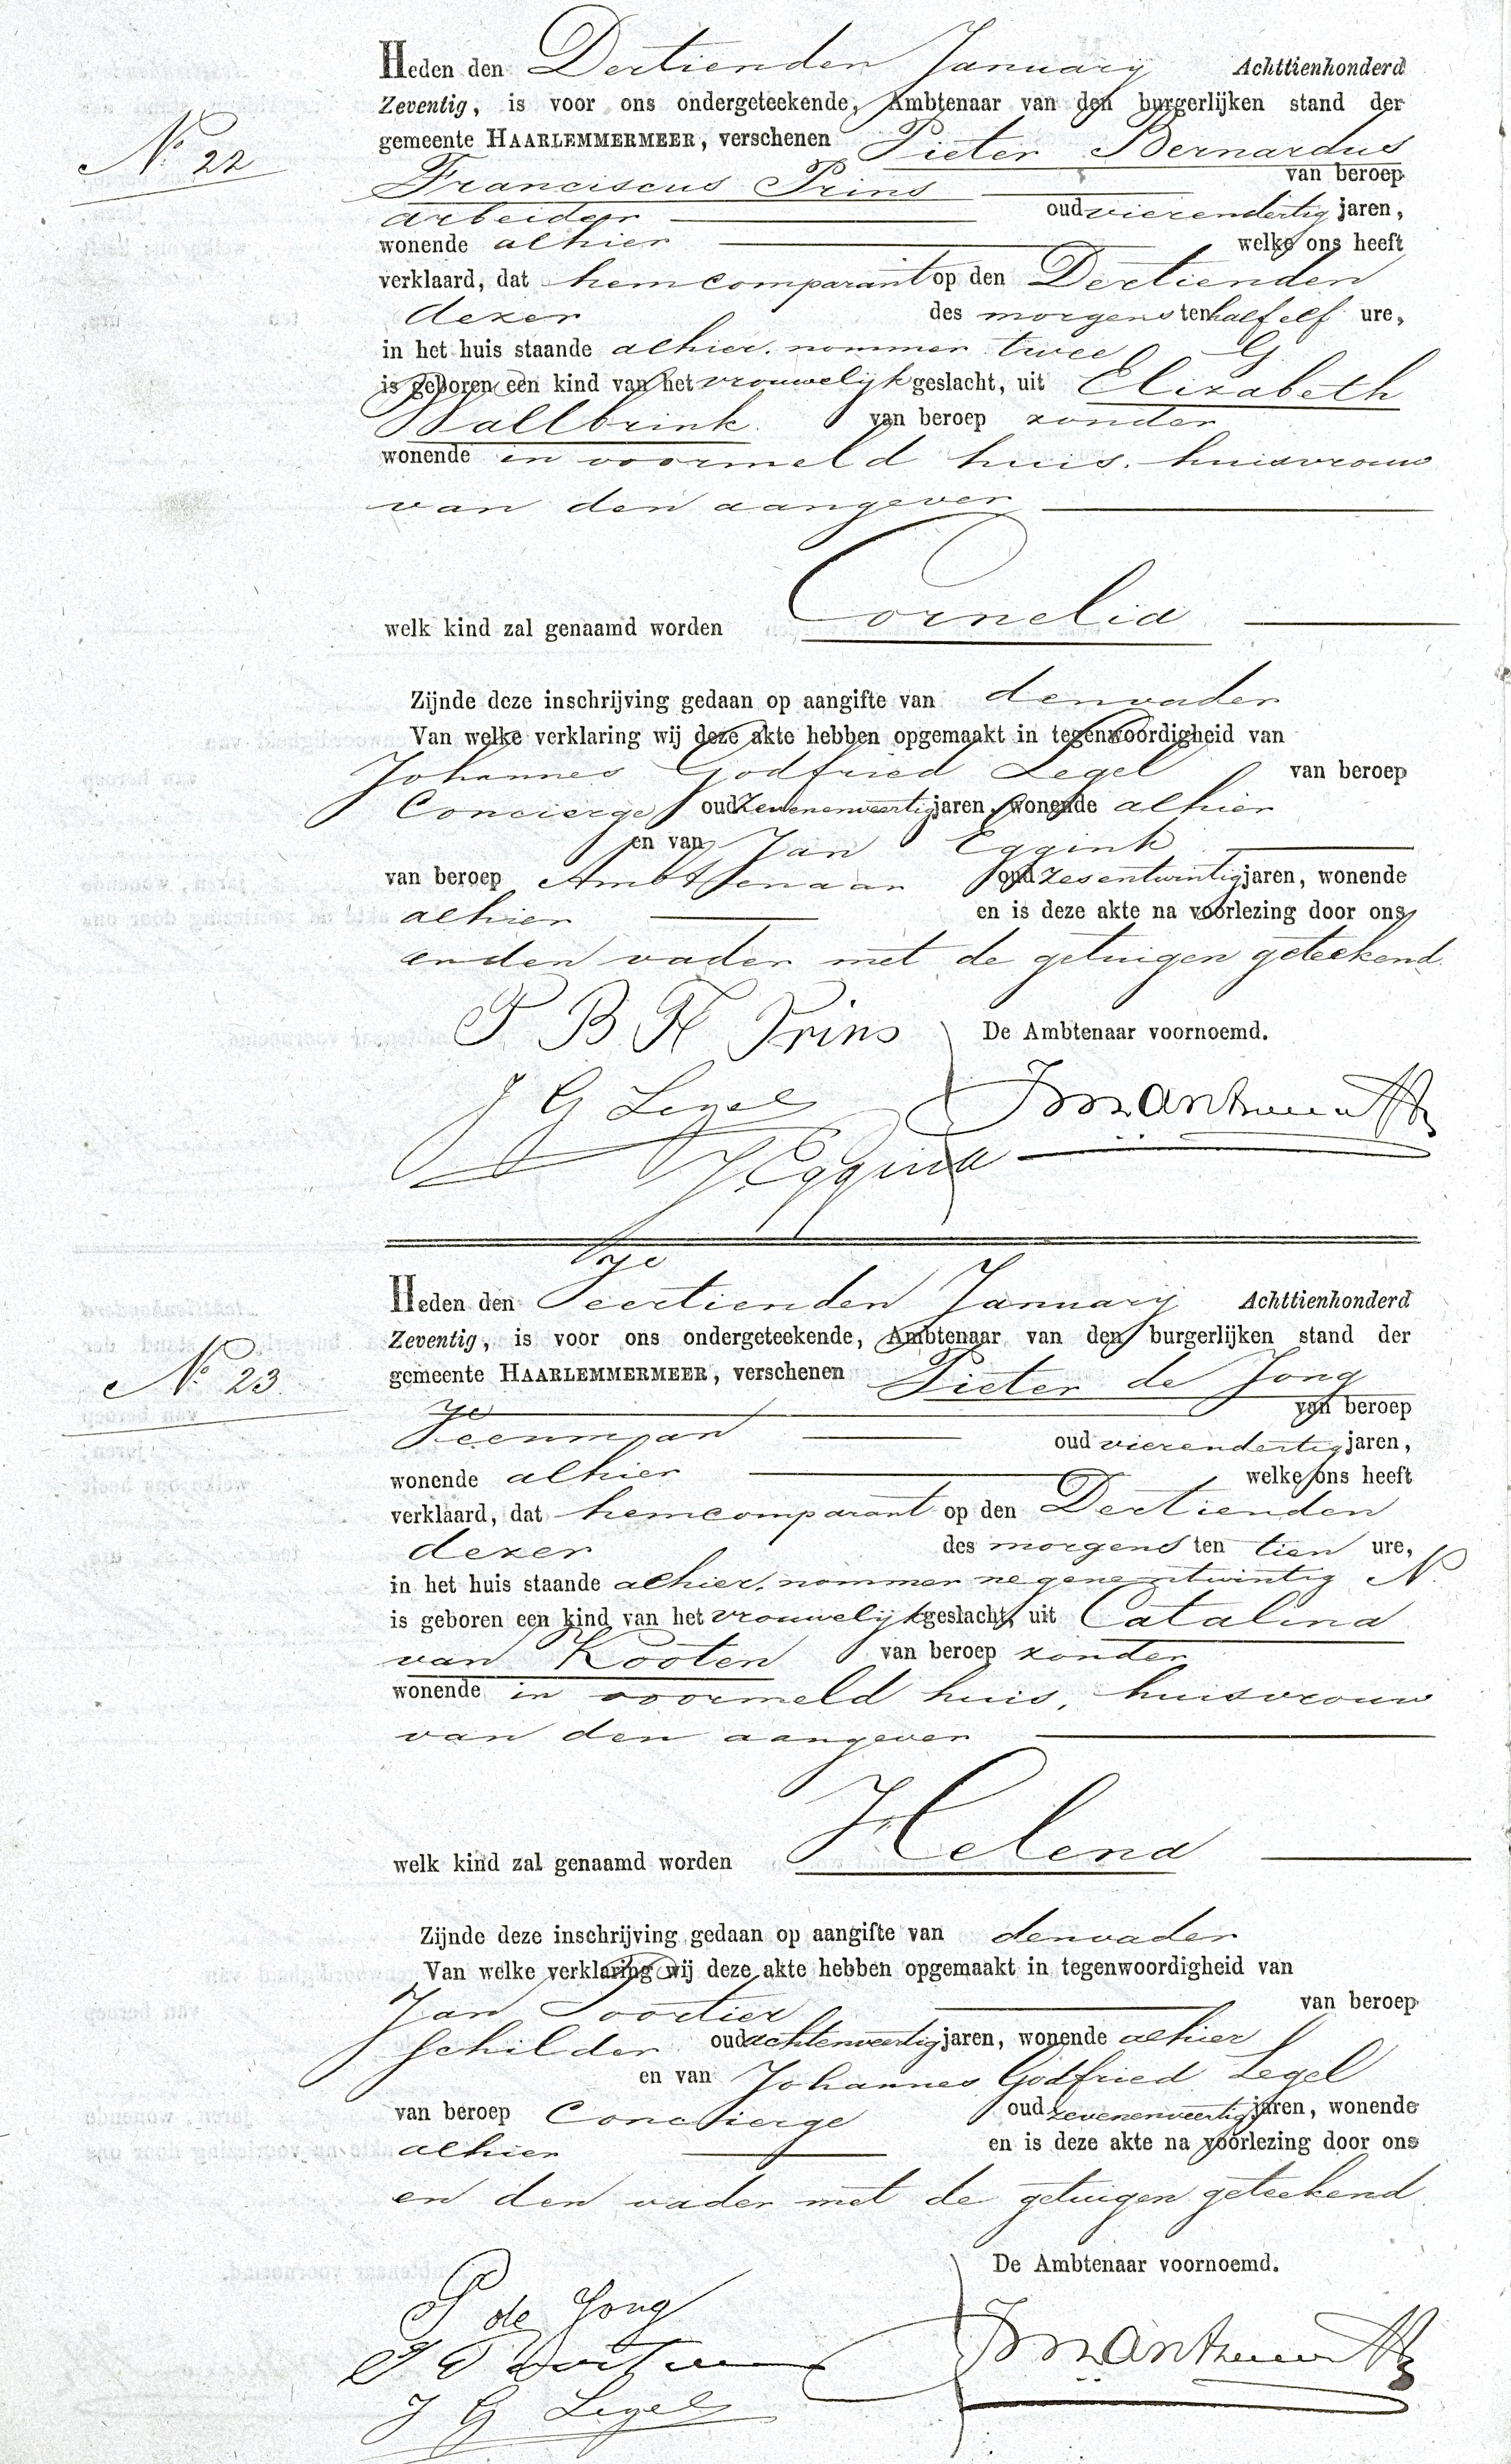 Heden den Dertienden January Achttienhonderd
Zeventig, is voor ons ondergeteekende, Ambtenaar van den burgerlijken stand der
gemeente HAARLEMMERMEER, verschenen Pieter Bernardus
No. 22
Franciscus Prins van beroep
arbeider oud vierendertig jaren,
wonende alhier welke ons heeft
verklaard, dat hem comparant op den Dertienden
dezer des morgens ten half elf ure,
in het huis staande alhier. nommer twee G
is geboren een kind van het vrouwelijk geslacht, uit Elizabeth
Wallbrink. van beroep zonder
wonende in voormeld huis. huisvrouw
van den aangever
welk kind zal genaamd worden Cornelia
Zijnde deze inschrijving gedaan op aangifte van den vader
Van welke verklaring wij deze akte hebben opgemaakt in tegenwoordigheid van
Johannes Godfried Legel van beroep
Concierge oud zevenenveertig jaren, wonende alhier
en van Jan Eggink
van beroep Ambtenaar oud zesentwintig jaren, wonende
alhier en is deze akte na voorlezing door ons
en den vader met de getuigen geteekend.
P B F Prins De Ambtenaar voornoemd.
J G Legel
J. Eggink
Heden den Veertienden January Achttienhonderd
Zeventig, is voor ons ondergeteekende, Ambtenaar van den burgerlijken stand der
gemeente HAARLEMMERMEER, verschenen Pieter de Jong
No. 23.
van beroep
Veenman oud vierendertig jaren,
wonende alhier welke ons heeft
verklaard, dat hem comparant op den Dertienden
dezer des morgens ten tien ure,
in het huis staande alhier. nommer negenentwintig N.
is geboren een kind van het vrouwelijk geslacht, uit Catalina
van Kooten van beroep zonder
wonende in voormeld huis, huisvrouw
van den aangever
welk kind zal genaamd worden Helena
Zijnde deze inschrijving gedaan op aangifte van den vader
Van welke verklaring wij deze akte hebben opgemaakt in tegenwoordigheid van
Jan Poortier van beroep
Schilder oud achtenveertig jaren, wonende alhier
en van Johannes Godfried Legel
van beroep Concierge oud zevenenveertig jaren, wonende
alhier en is deze akte na voorlezing door ons
en den vader met de getuigen geteekend.
De Ambtenaar voornoemd.
P de Jong
J G Legel